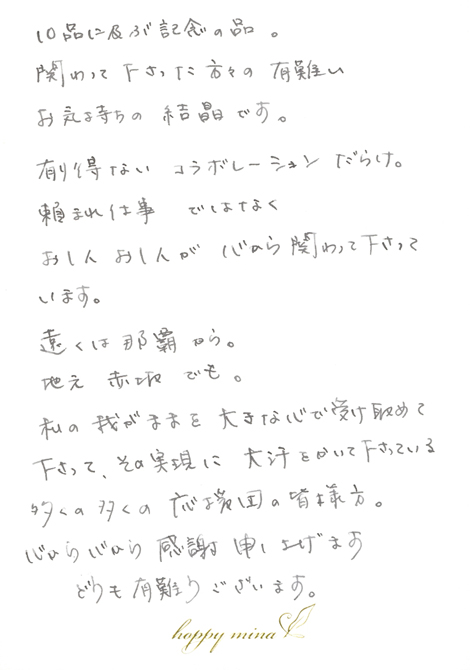 10品に及ぶ記念の品。
関わって下さった方々の有難い
お気持ちの結晶です。
有り得ないコラボレーションだらけ。
頼まれ仕事ではなく
お一人お一人が心から関わって下さって
います。
遠くは那覇から。
地元赤坂でも。
私の我がままを大きな心で受け取めて
下さって、その実現に大汗をかいて下さっている
多くの多くの応援団の皆様方。
心から心から感謝申し上げます
どうも有難うございます。
happy mina